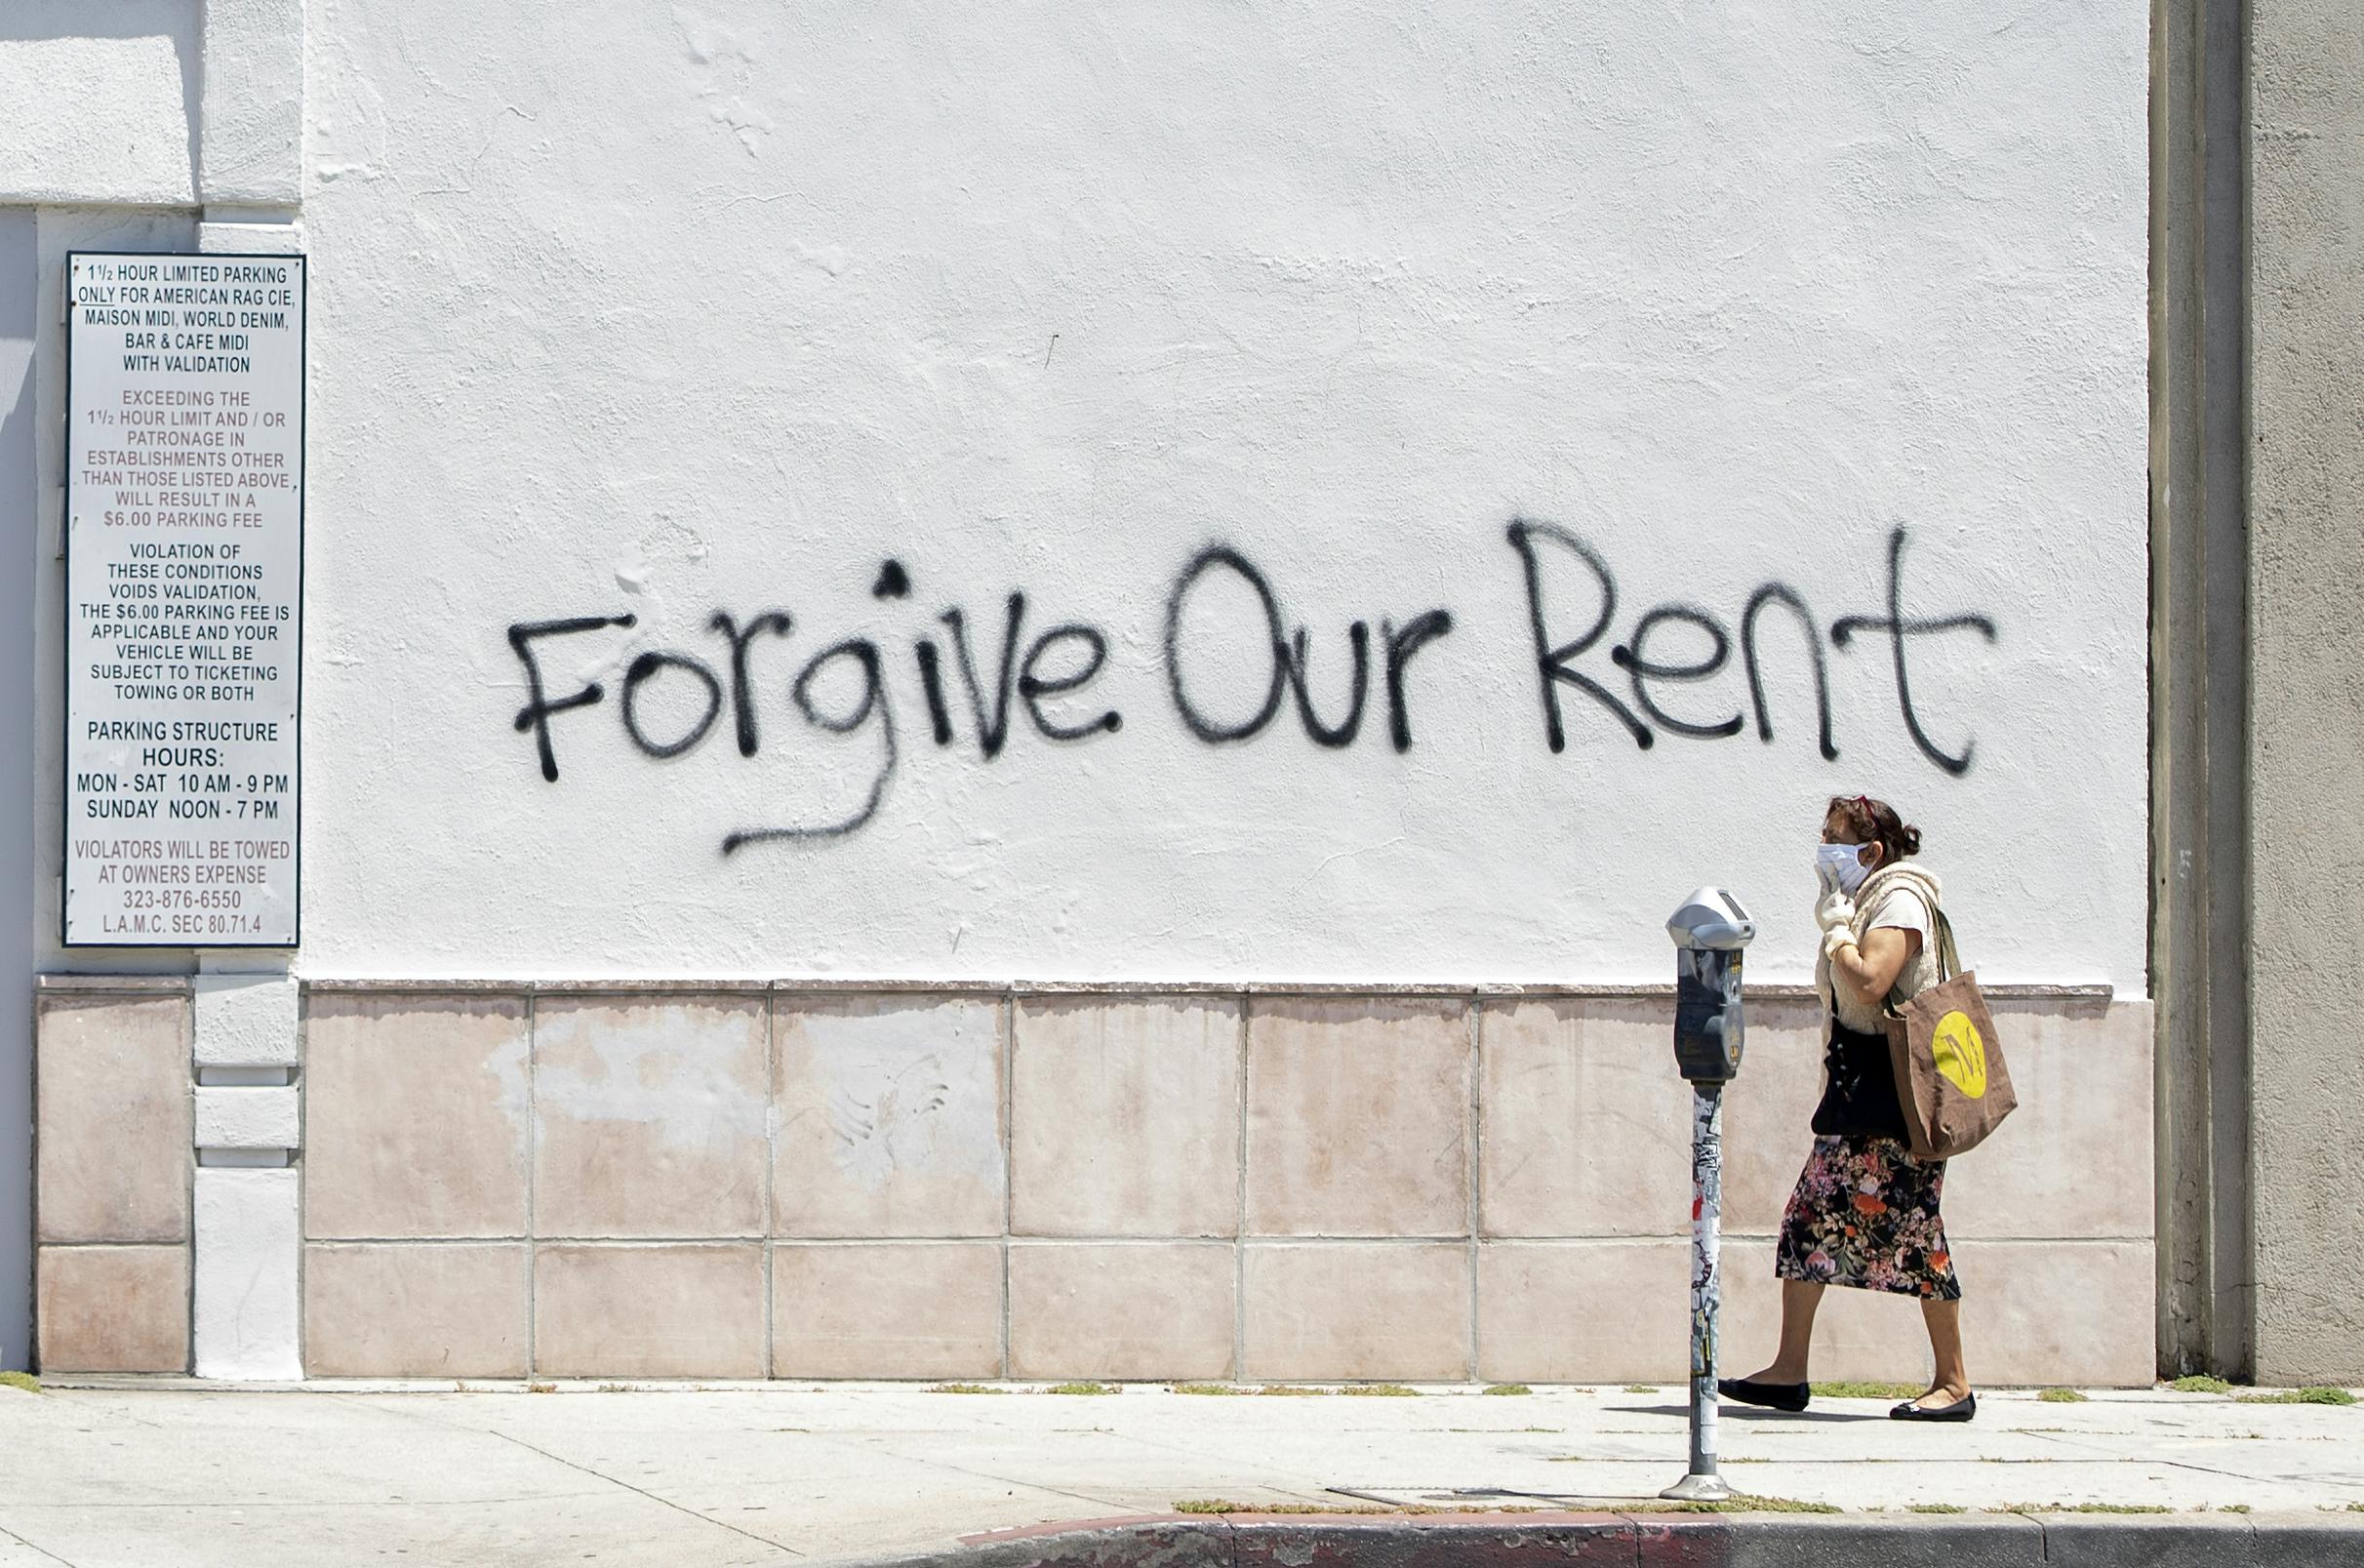 1 1/2 HOUR LIMITED PARKING
ONLY FOR AMERICAN RAG CIE,
MAISON MIDI, WORLD DENIM,
BAR & CAFE MIDI
WITH VALIDATION
EXCEEDING THE
1 1/2 HOUR LIMIT AND / OR
PATRONAGE IN
ESTABLISHMENTS OTHER
THAN THOSE LISTED ABOVE,
WILL RESULT IN A
$6.00 PARKING FEE
VIOLATION OF
THESE CONDITIONS
VOIDS VALIDATION,
THE $6.00 PARKING FEE IS
APPLICABLE AND YOUR
VEHICLE WILL BE
SUBJECT TO TICKETING
TOWING OR BOTH
PARKING STRUCTURE
HOURS:
MON - SAT 10 AM - 9 PM
SUNDAY NOON - 7 PM
VIOLATORS WILL BE TOWED
AT OWNERS EXPENSE
323-876-6550
L.A.M.C. SEC 80.71.4
Forgive Our Rent
M